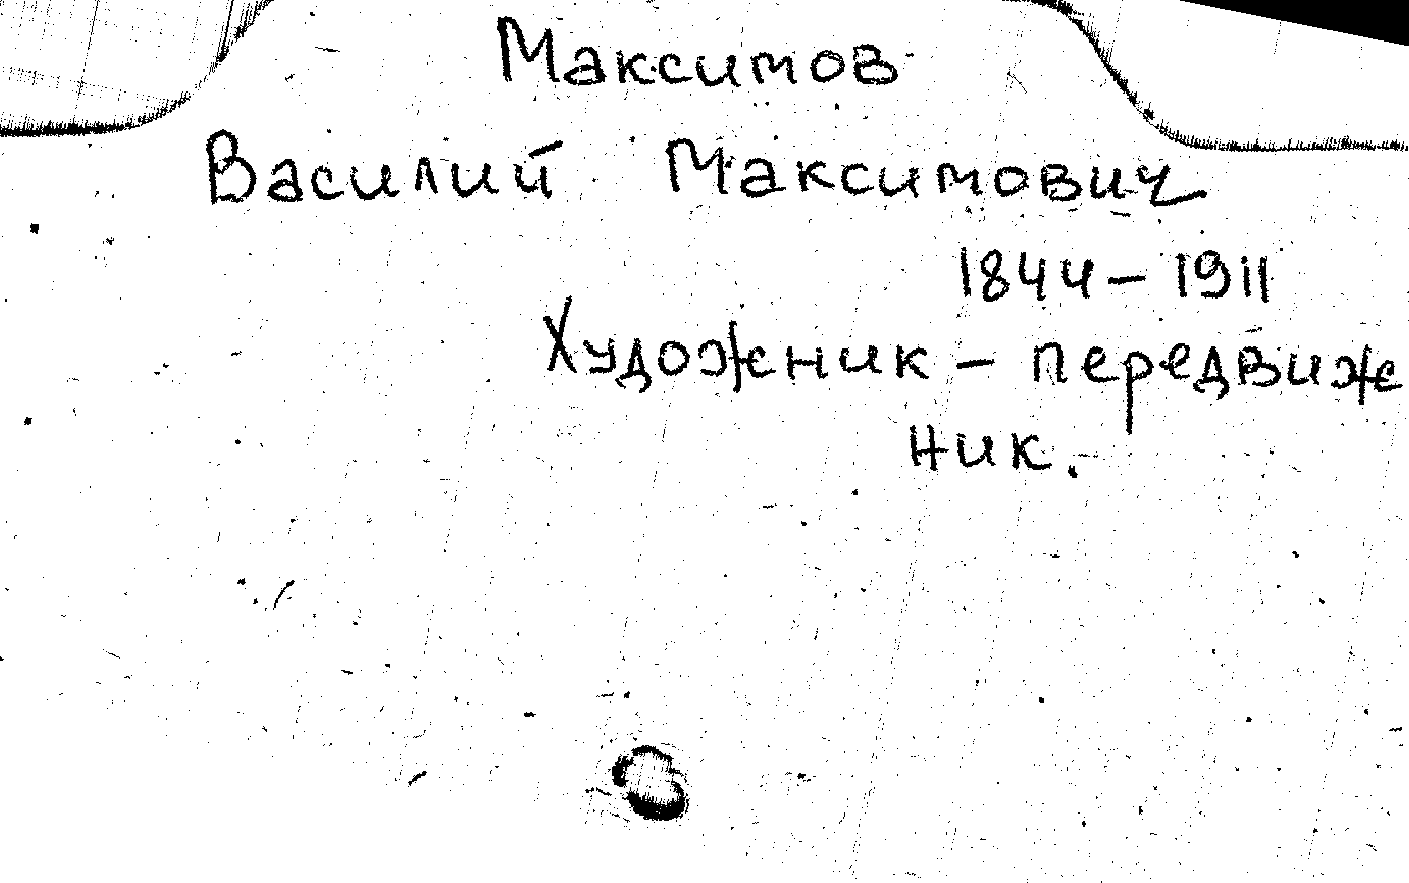 Максимов
Василий Максимович
1844 – 1911
Художник – передвиж
ник.